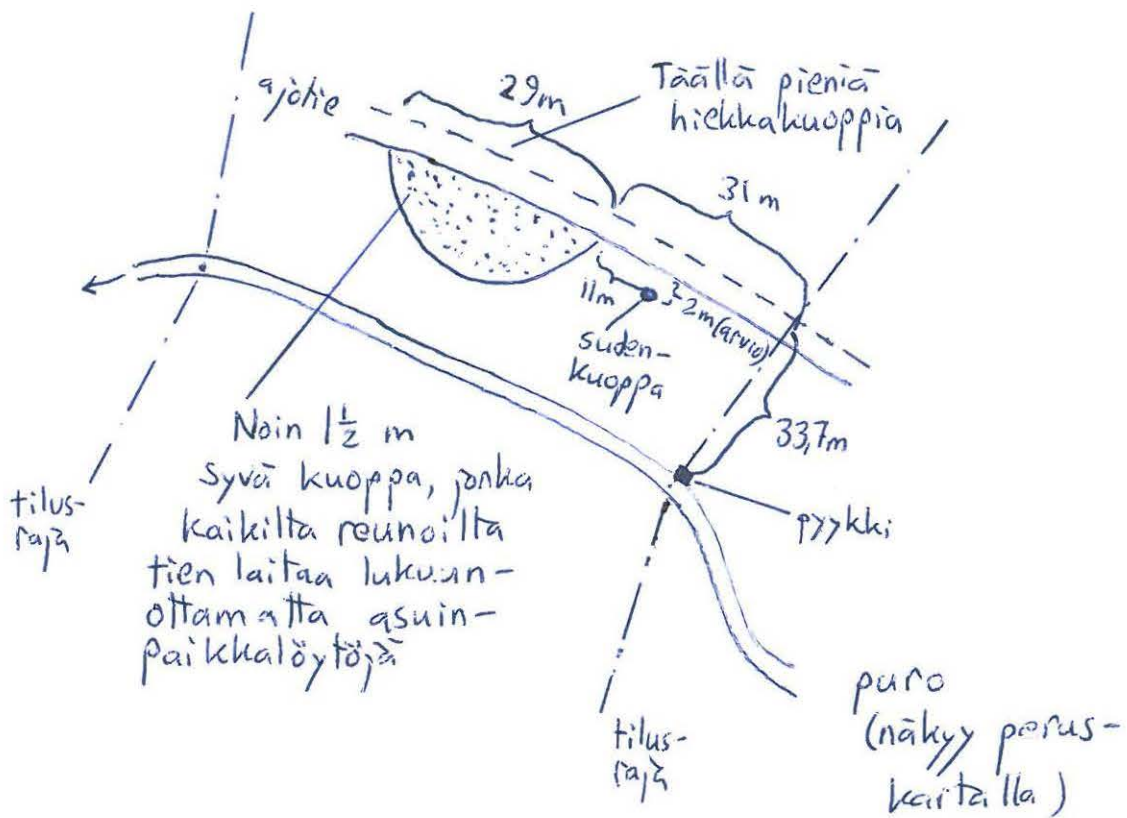 ajotie
29m
Täällä pieniä
hiekkakuoppia
31m
11m
2m (arvio)
suden-
kuoppa
33,7m
pyykki
Noin 1½ m
syvä kuoppa, jonka
kaikilta reunoilta
tien laitaa lukuun-
ottamatta asuin-
paikkalöytöjä
tilus-
raja
tilus-
raja
puro
(näkyy perus-
kartalla)